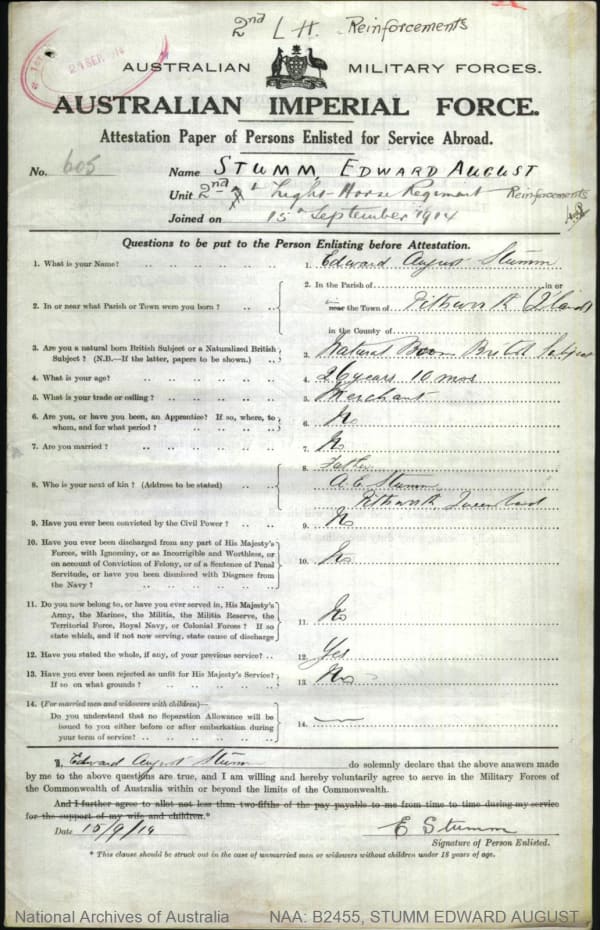 2nd L H. Reinforcements
24 SEP 1914
AUSTRALIAN MILITARY FORCES.
AUSTRALIAN IMPERIAL FORCE.
Attestation Paper of Persons Enlisted for Service Abroad.
No. 605 Name STUMM, EDWARD AUGUST
Unit 2nd Light Horse Regiment Reinforcements
Joined on 15 September 1914
Questions to be put to the Person Enlisting before Attestation.
1. What is your Name? .. .. .. .. .. 1. Edward August Stumm
2. In or near what Parish or Town were you born? .. .. 2. In the Parish of in or
near the Town of Pittsworth (Q'land)
in the County of
3. Are you a natural born British Subject or a Naturalized British
Subject? (N.B.—If the latter, papers to be shown.) .. 3. Natural Born British Subject
4. What is your age? .. .. .. .. .. 4. 26 years 10 mos
5. What is your trade or calling? .. .. .. .. 5. Merchant
6. Are you, or have you been, an Apprentice? If so, where, to
whom, and for what period? .. .. .. .. 6. No
7. Are you married? .. .. .. .. .. 7. No
8. Who is your next of kin? (Address to be stated) .. .. 8. Father
Stumm
Pittsworth Queensland
9. Have you ever been convicted by the Civil Power? .. .. 9. No
10. Have you ever been discharged from any part of His Majesty's
Forces, with Ignominy, or as Incorrigible and Worthless, or
on account of Conviction of Felony, or of a Sentence of Penal
Servitude, or have you been dismissed with Disgrace from
the Navy? .. .. .. .. .. 10. No
11. Do you now belong to, or have you ever served in, His Majesty's
Army, the Marines, the Militia, the Militia Reserve, the
Territorial Force, Royal Navy, or Colonial Forces? If so
state which, and if not now serving, state cause of discharge 11. No
12. Have you stated the whole, if any, of your previous service? .. 12. Yes
13. Have you ever been rejected as unfit for His Majesty's Service?
If so on what grounds? .. .. .. .. 13. No
14. (For married men and widowers with children)—
Do you understand that no Separation Allowance will be
issued to you either before or after embarkation during
your term of service? .. .. .. .. 14. —
I, Edward August Stumm do solemnly declare that the above answers made
by me to the above questions are true, and I am willing and hereby voluntarily agree to serve in the Military Forces of
the Commonwealth of Australia within or beyond the limits of the Commonwealth.
And I further agree to allot not less than two-fifths of the pay payable to me from time to time during my service
for the support of my wife and children.*
Date 15/9/14 E Stumm
Signature of Person Enlisted.
* This clause should be struck out in the case of unmarried men or widowers without children under 18 years of age.
National Archives of Australia NAA: B2455, STUMM EDWARD AUGUST